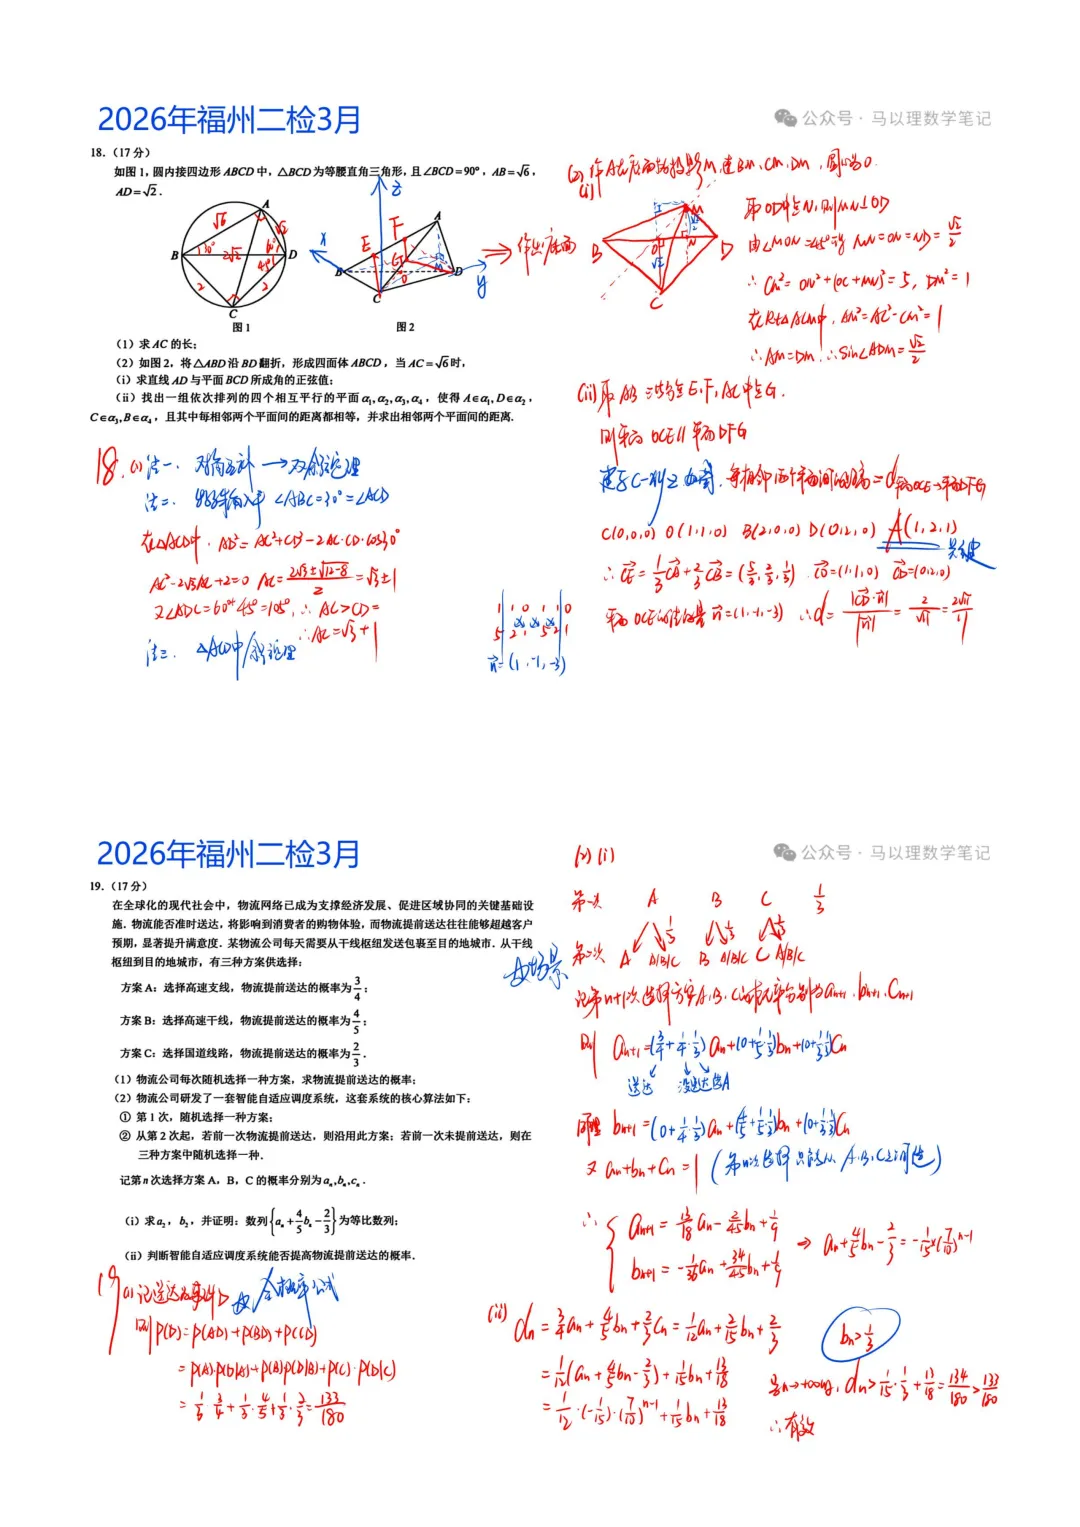 2026年福州二检3月
公众号 · 马以理数学笔记
18.（17分）
如图1，圆内接四边形ABCD中，△BCD为等腰直角三角形，且∠BCD=90°，AB=√6，
AD=√2．
图1
图2
（1）求AC的长；
（2）如图2，将△ABD沿BD翻折，形成四面体ABCD，当AC=√6时，
（i）求直线AD与平面BCD所成角的正弦值；
（ii）找出一组依次排列的四个相互平行的平面α₁,α₂,α₃,α₄，使得A∈α₁,D∈α₂，
C∈α₃,B∈α₄，且其中每相邻两个平面间的距离都相等，并求出相邻两个平面间的距离．
18.(1) 法一、对角互补→双余弦定理
∠ABC=30°=∠ACD
在△ACD中，AD²=AC²+CD²-2AC·CD·cos30°
AC²-2√3AC+2=0 AC=(2√3±√(12-8))/2=√3±1
又∠ADC=60°+45°=105°，∴AC>CD=
∴AC=√3+1
法三、△ACD中
取OD中点N，则MN⊥OD
由∠MON=45°可得 MN=ON=ND=√2/2
∴CM²=ON²+(OC+MN)²=5，DM²=1
在Rt△ACM中，AM²=AC²-CM²=1
∴AM=DM，∴sin∠ADM=√2/2
(ii) 取AB三等分点E、F，AC中点G．
则平面OCE∥平面DFG
C(0,0,0) O(1,1,0) B(2,0,0) D(0,2,0) A(1,2,1)
∴CE=1/3CA+2/3CB=(5/3,2/3,1/3) CO=(1,1,0) CD=(0,2,0)
平面OCE的法向量n=(1,-1,-3) ∴d=|CD·n|/|n|=2/√11=2√11/11
n=(1,-1,-3)
2026年福州二检3月
公众号 · 马以理数学笔记
19.（17分）
在全球化的现代社会中，物流网络已成为支撑经济发展、促进区域协同的关键基础设
施．物流能否准时送达，将影响到消费者的购物体验，而物流提前送达往往能够超越客户
预期，显著提升满意度．某物流公司每天需要从干线枢纽发送包裹至目的地城市．从干线
枢纽到目的地城市，有三种方案供选择：
方案A：选择高速支线，物流提前送达的概率为3/4；
方案B：选择高速干线，物流提前送达的概率为4/5；
方案C：选择国道线路，物流提前送达的概率为2/3．
（1）物流公司每次随机选择一种方案，求物流提前送达的概率；
（2）物流公司研发了一套智能自适应调度系统，这套系统的核心算法如下：
① 第1次，随机选择一种方案；
② 从第2次起，若前一次物流提前送达，则沿用此方案；若前一次未提前送达，则在
三种方案中随机选择一种．
记第n次选择方案A，B，C的概率分别为aₙ,bₙ,cₙ．
（i）求a₂，b₂，并证明：数列{aₙ+4/5bₙ-2/3}为等比数列；
（ii）判断智能自适应调度系统能否提高物流提前送达的概率．
19 (1) 记送达为事件D 全概率公式
则P(D)=P(AD)+P(BD)+P(CD)
=P(A)·P(D|A)+P(B)P(D|B)+P(C)·P(D|C)
=1/3·3/4+1/3·4/5+1/3·2/3=133/180
(2)(i)
第一次 A B C 1/3
第二次 A A/B/C B A/B/C C A/B/C
记第n+1次选择方案A、B、C的概率分别为aₙ₊₁、bₙ₊₁、cₙ₊₁
则 aₙ₊₁=(3/4+1/4·1/3)aₙ+(0+1/5·1/3)bₙ+(0+1/3·1/3)cₙ
送达 没送达选A
同理 bₙ₊₁=(0+1/4·1/3)aₙ+(4/5+1/5·1/3)bₙ+(0+1/3·1/3)cₙ
又 aₙ+bₙ+cₙ=1
∴ aₙ₊₁=13/18aₙ-2/45bₙ+1/9
bₙ₊₁=-1/36aₙ+34/45bₙ+1/9
⇒ aₙ+4/5bₙ-2/3=-1/15×(7/10)ⁿ⁻¹
(ii) dₙ=3/4aₙ+4/5bₙ+2/3cₙ=1/12aₙ+2/15bₙ+2/3
=1/12(aₙ+4/5bₙ-2/3)+1/15bₙ+13/18
=1/12·(-1/15)·(7/10)ⁿ⁻¹+1/15bₙ+13/18
bₙ>1/3
当n→+∞时，dₙ>1/15·1/3+13/18=134/180>133/180
∴有效